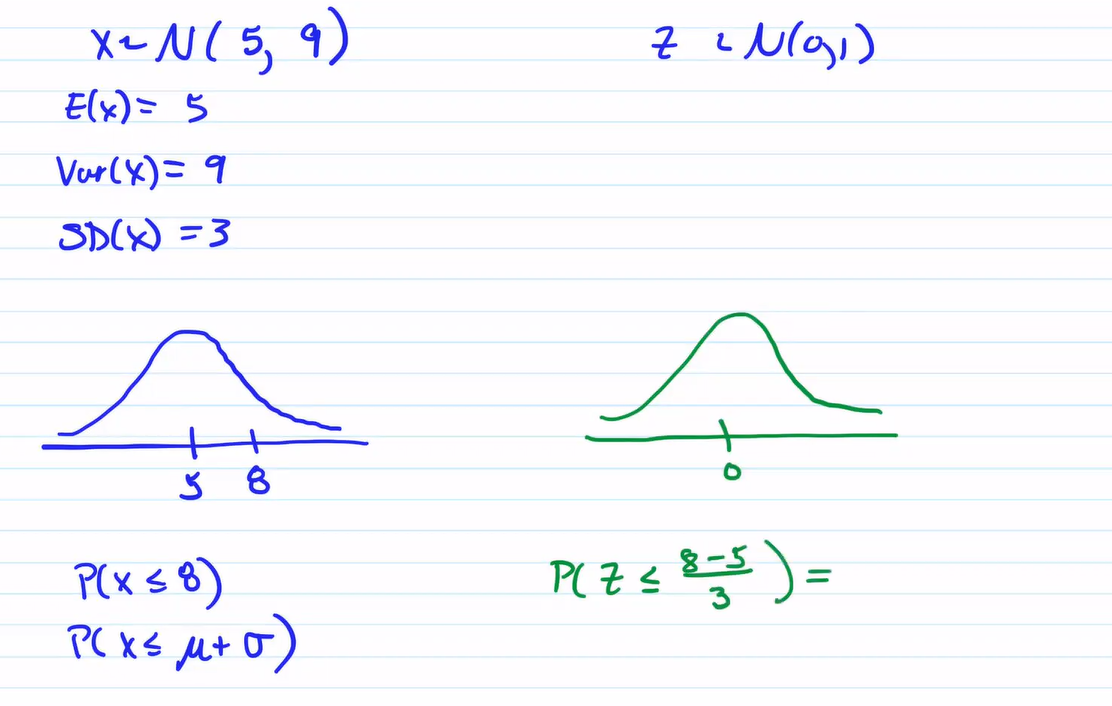 x ~ N( 5, 9)
E(x) = 5
Var(x) = 9
SD(x) = 3
5 8
P(x ≤ 8)
P(x ≤ μ + σ)
z ~ N(0,1)
0
P( z ≤ (8-5)/3 ) =